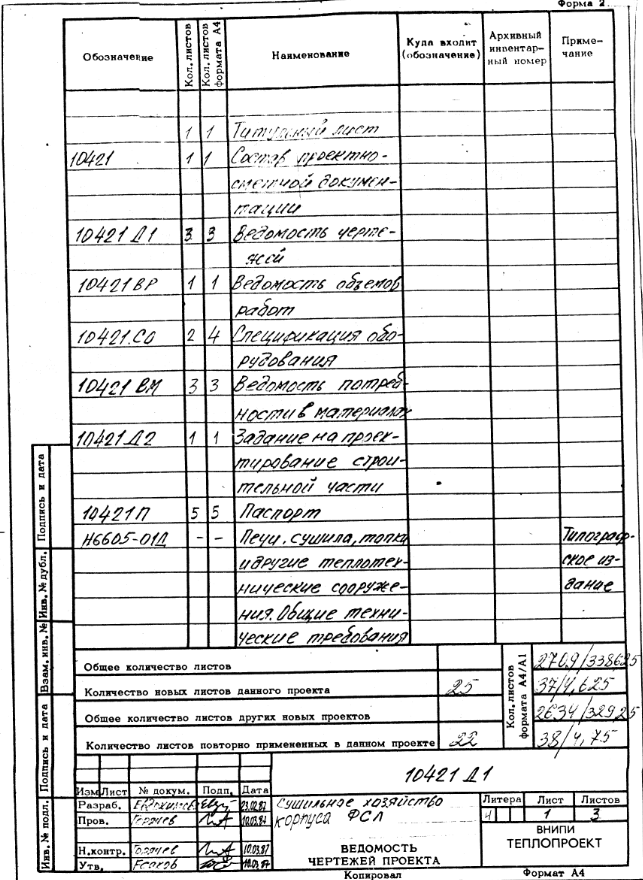 Форма 2
Обозначение Кол. листов Кол. листов формата А4 Наименование Куда входит (обозначение) Архивный инвентарный номер Примечание
1 1 Титульный лист
10421 1 1 Состав проектно-
сметной докумен-
тации
10421 Д1 3 3 Ведомость черте-
жей
10421 ВР 1 1 Ведомость объемов
работ
10421.СО 2 4 Спецификация обо-
рудования
10421 ВМ 3 3 Ведомость потреб-
ности в материалах
10421 Д2 1 1 Задание на проек-
тирование строи-
тельной части
10421 П 5 5 Паспорт
Н6605-01Д - - Печи, сушила, топки Типограф-
и другие теплотех- ское из-
нические сооруже- дание
ния. Общие техни-
ческие требования
Общее количество листов 2709/338625
Количество новых листов данного проекта 25 37/4,625
Общее количество листов других новых проектов 2634/32925
Количество листов повторно примененных в данном проекте 22 38/4,75
Кол. листов формата А4/А1
10421 Д1
Изм Лист № докум. Подп. Дата
Разраб. 23.02.87 Сушильное хозяйство
Пров. корпуса ФСЛ
Н.контр. 10.03.87
Утв.
Литера Лист Листов
1 3
ВЕДОМОСТЬ
ЧЕРТЕЖЕЙ ПРОЕКТА
ВНИПИ
ТЕПЛОПРОЕКТ
Копировал Формат А4
Инв. № подл. Подпись и дата Взам. инв. № Инв. № дубл. Подпись и дата